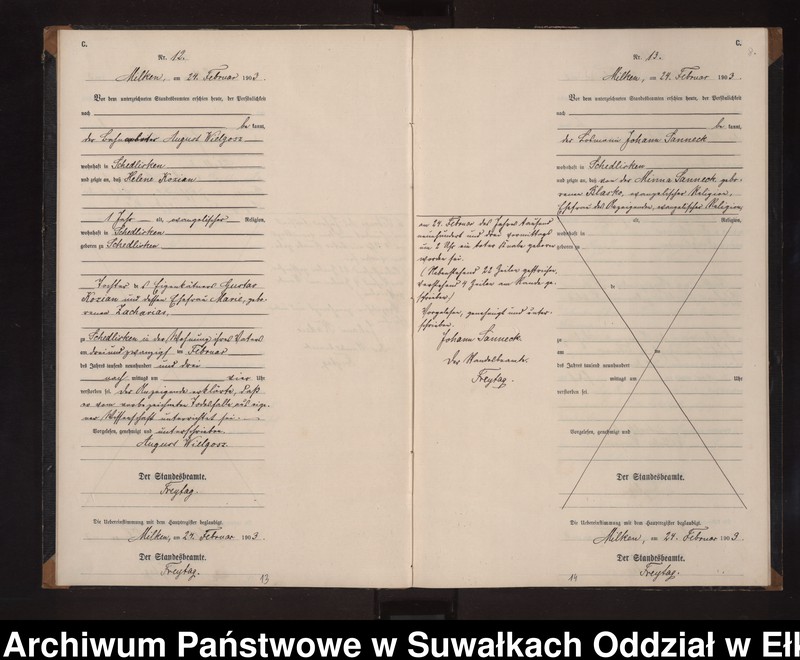 C.
Nr. 12.
Milken, am 24. Februar 1903.
Vor dem unterzeichneten Standesbeamten erschien heute, der Persönlichkeit
nach
be kannt,
der August Wielgosz
wohnhaft in Schedlisken
und zeigte an, daß Helene Kozian
1 Jahr alt, evangelischer Religion,
wohnhaft in Schedlisken
geboren zu Schedlisken
Tochter des Eigenkätners Gustav
Kozian und dessen Ehefrau Marie, gebo-
rener Zacharias,
zu Schedlisken in der Wohnung ihres Vaters
am dreiundzwanzigsten Februar
des Jahres tausend neunhundert und drei
nach mittags um vier Uhr
verstorben sei. Der Anzeigende erklärte, daß
er vom vorbezeichneten Todesfalle aus eige-
ner Wissenschaft unterrichtet sei.
Vorgelesen, genehmigt und unterschrieben
August Wielgosz
Der Standesbeamte.
Freytag.
Die Uebereinstimmung mit dem Hauptregister beglaubigt.
Milken, am 24. Februar 1903.
Der Standesbeamte.
Freytag.
13
C.
Nr. 13.
Milken, am 24. Februar 1903.
Vor dem unterzeichneten Standesbeamten erschien heute, der Persönlichkeit
nach
be kannt,
der Losmann Johann Sanneck
wohnhaft in Schedlisken
und zeigte an, daß von der Minna Sanneck gebo-
renen evangelischer Religion,
Ehefrau des Anzeigenden, evangelischer Religion,
alt, Religion,
wohnhaft in
geboren zu
zu
am
des Jahres tausend neunhundert
mittags um Uhr
verstorben sei.
Vorgelesen, genehmigt und
Der Standesbeamte.
Die Uebereinstimmung mit dem Hauptregister beglaubigt.
Milken, am 24. Februar 1903.
Der Standesbeamte.
Freytag.
am 24. Februar des Jahres tausend
neunhundert und drei vormittags
um 2 Uhr ein toter Knabe geboren
worden sei.
(Nebenstehend 22 Zeilen gestrichen,
vorstehend 4 Zeilen am Rande ge-
schrieben)
Vorgelesen, genehmigt und unter-
schrieben.
Johann Sanneck.
Der Standesbeamte.
Freytag.
14
Archiwum Państwowe w Suwałkach Oddział w Ełk